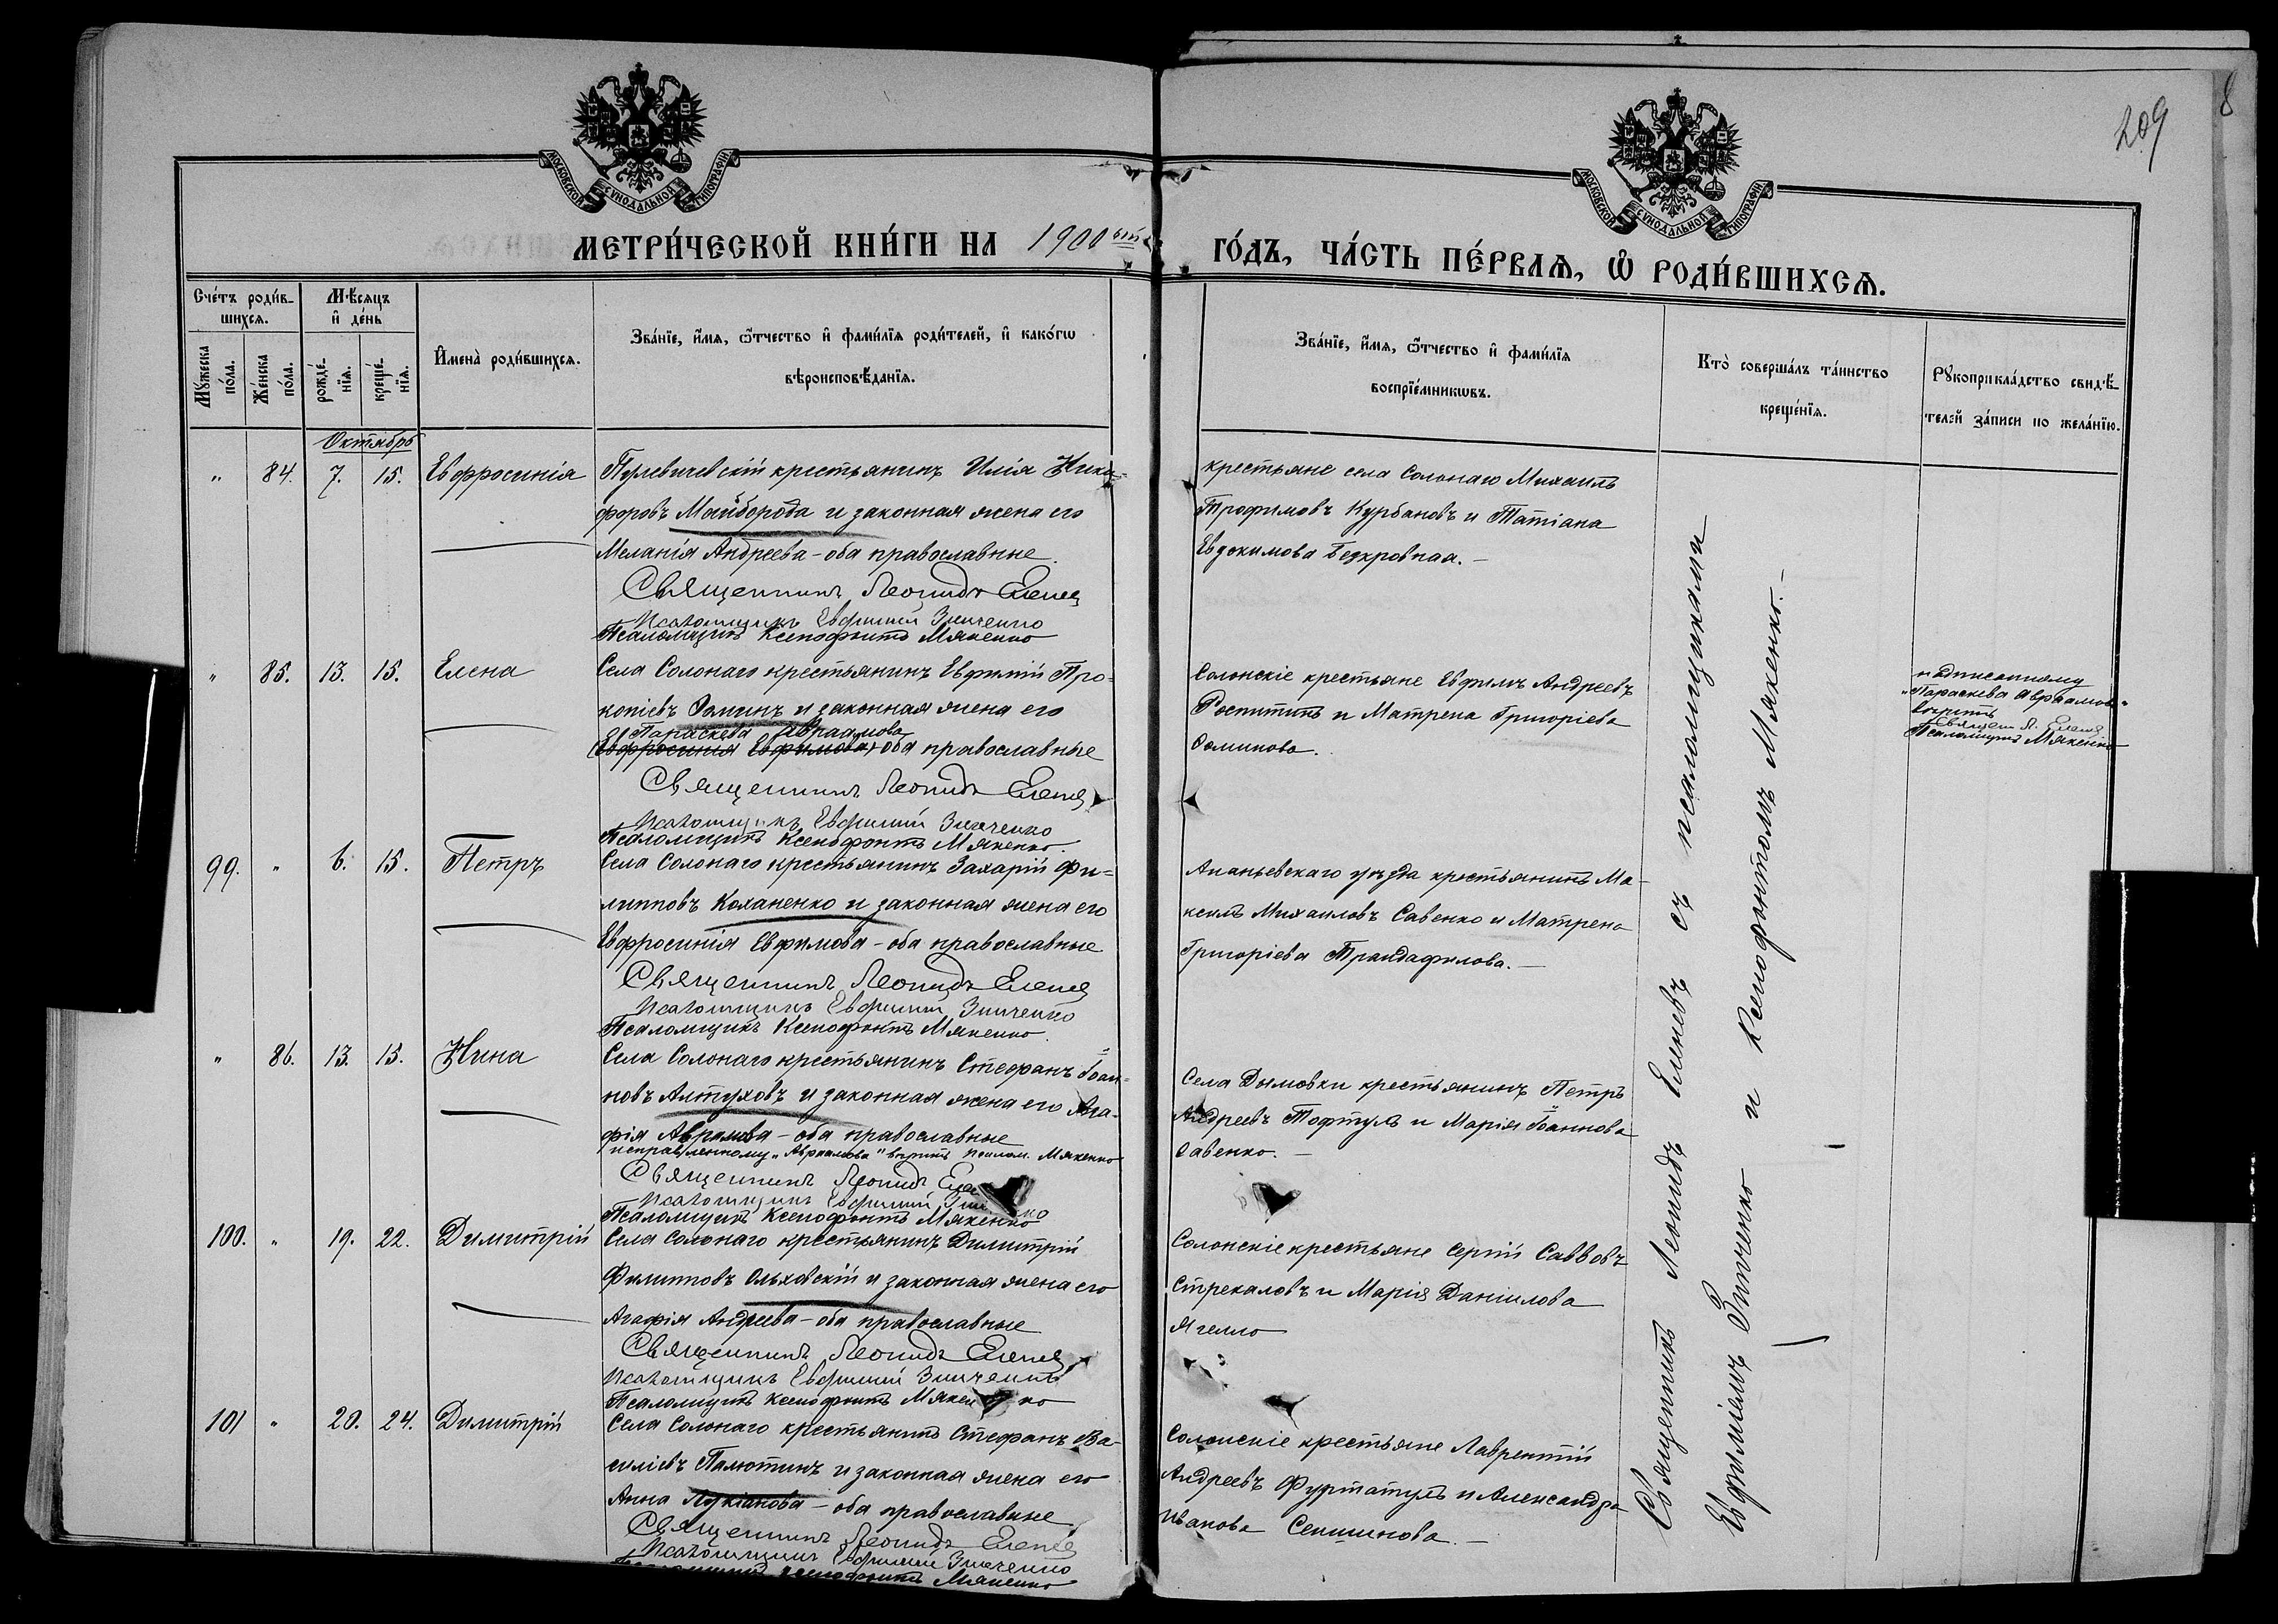 209
8
МОСКОВСКОЙ СѴНОДАЛЬНОЙ ТИПОГРАФІИ
МОСКОВСКОЙ СѴНОДАЛЬНОЙ ТИПОГРАФІИ
МЕТРИ́ЧЕСКОЙ КНИ́ГИ НА 1900 ый
ГО́ДЪ, ЧА́СТЬ ПЕ́РВАѦ, Ѽ РОДИ́ВШИХСѦ.
Сче́тъ роди́в-
шихсѧ.
Мꙋ́жеска по́ла.
Же́нска по́ла.
Мѣ́сѧцъ и҆ де́нь
рожде́-нїѧ.
креще́-нїѧ.
И҆мена̀ роди́вшихсѧ.
Зва́нїе, и҆́мѧ, ѻ҆́тчество и҆ фами́лїѧ роди́телей, и҆ како́гѡ
вѣроисповѣ́данїѧ.
Зва́нїе, и҆́мѧ, ѻ҆́тчество и҆ фами́лїѧ
воспрїе́мникѡвъ.
Кто̀ соверша́лъ та́инство
креще́нїѧ.
Рꙋкоприкла́дство свидѣ́-
телей за́писи по жела́нїю.
Октябрь
" 84. 7. 15. Евфросинія Пулевичевскій крестьянинъ Илія Ники-
форовъ Майборода и законная жена его
Меланія Андреева - оба православные.
Священникъ Леонидъ Еленев
Псаломщикъ Евфимій Зинченко
Псаломщикъ Ксенофонтъ Мякенко
крестьяне села Солонаго Михаилъ
Трофимовъ Курбановъ и Татіана
Евдокимова Безкровная. -
" 85. 13. 15. Елена Села Солонаго крестьянинъ Евфимій Про-
копіевъ Фоминъ и законная жена его
Параскева Авраамова
(Евфросинія Евфимова) - оба православные
Священникъ Леонидъ Еленев
Псаломщикъ Евфимій Зинченко
Псаломщикъ Ксенофонтъ Мякенко.
Солонскіе крестьяне Евфимъ Андреевъ
и Матрена Григоріева
Фоминова.
надписанному
"Параскева Авраамова"
вѣрить
Священ. Л. Еленев
Псаломщикъ Мякенко
99. " 6. 15. Петръ Села Солонаго крестьянинъ Захарій Фи-
липповъ Коханенко и законная жена его
Евфросинія Евфимова - оба православные
Священникъ Леонидъ Еленев
Псаломщикъ Евфимій Зинченко
Псаломщикъ Ксенофонтъ Мякенко.
Ананьевскаго уѣзда крестьянинъ Ма-
ксимъ Михаиловъ Савенко и Матрена
Григоріева Трандафилова. -
" 86. 13. 15. Нина Села Солонаго крестьянинъ Стефанъ Іоан-
новъ Алтуховъ и законная жена его Ага-
фія Аврамова - оба православные
исправленному "Авраамова" вѣрить псалом. Мякенко
Священникъ Леонидъ Еле
Псаломщикъ Евфимій Зин ко
Псаломщикъ Ксенофонтъ Мякенко
Села Дымовки крестьянинъ Петръ
Андреевъ Тофтулъ и Марія Іоаннова
Савенко. -
100. " 19. 22. Димитрій Села Солонаго крестьянинъ Димитрій
Филипповъ Ольховскій и законная жена его
Агафія Андреева - оба православные
Священникъ Леонидъ Еленев
Псаломщикъ Евфимій Зинченко
Псаломщикъ Ксенофонтъ Мякен ко
Солонскіе крестьяне Сергій Саввовъ
Стрекаловъ и Марія Даніилова
Ягелло
101 " 20. 24. Димитрій Села Солонаго крестьянинъ Стефанъ Ва-
силіевъ Палютинъ и законная жена его
Анна Лукіанова - оба православные
Священникъ Леонидъ Еленев
Псаломщикъ Евфимій Зинченко
Ксенофонтъ Мякенко
Солонскіе крестьяне Лаврентій
Андреевъ Фуртатулъ и Александра
Иванова Сенишнова. -
Священникъ Леонидъ Еленевъ съ псаломщиками
Евфиміемъ Зинченко и Ксенофонтомъ Мякенко. -